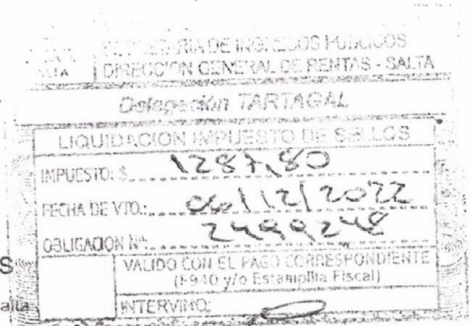 SECRETARIA DE INGRESOS PUBLICOS
DIRECCION GENERAL DE RENTAS - SALTA
Delegación TARTAGAL
LIQUIDACION IMPUESTO DE SELLOS
IMPUESTO: $ 1287,80
FECHA DE VTO.: 06/12/2022
OBLIGACION Nº: 2499248
VALIDO CON EL PAGO CORRESPONDIENTE
(F940 y/o Estampilla Fiscal)
INTERVINO: